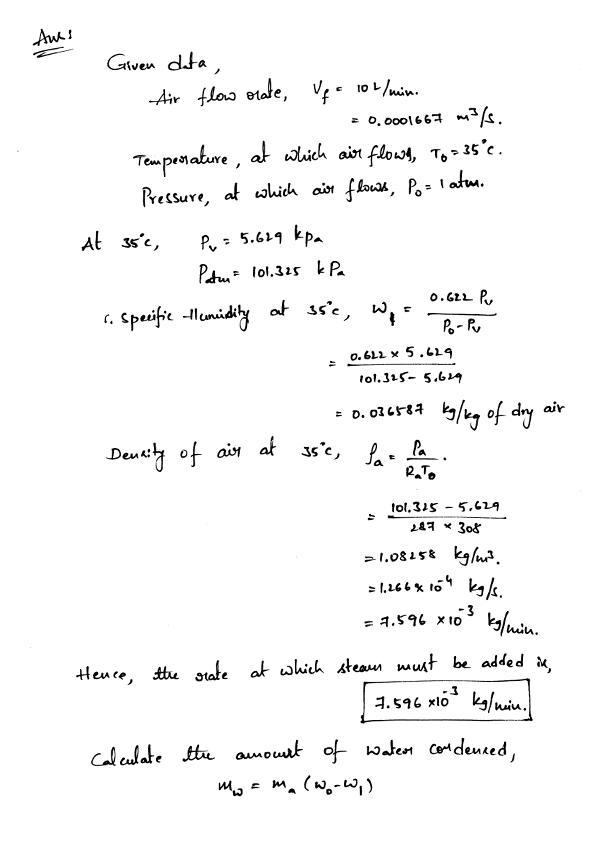 Ans:
Given data,
Air flow rate, V_f = 10 L/min.
= 0.0001667 m³/s.
Temperature, at which air flows, T₀ = 35°c.
Pressure, at which air flows, P₀ = 1 atm.
At 35°c, P_v = 5.629 kpa
P_atm = 101.325 kPa
∴ Specific Humidity at 35°c, W_1 = 0.622 P_v / P₀ - P_v
= 0.622 × 5.629 / 101.325 - 5.629
= 0.036587 kg/kg of dry air
Density of air at 35°c, ρ_a = P_a / R_a T₀.
= 101.325 - 5.629 / 287 × 308
= 1.08258 kg/m³.
= 1.266 × 10⁻⁴ kg/s.
= 7.596 × 10⁻³ kg/min.
Hence, the rate at which steam must be added is,
7.596 × 10⁻³ kg/min.
Calculate the amount of water condensed,
m_w = m_a (w₀ - w₁)